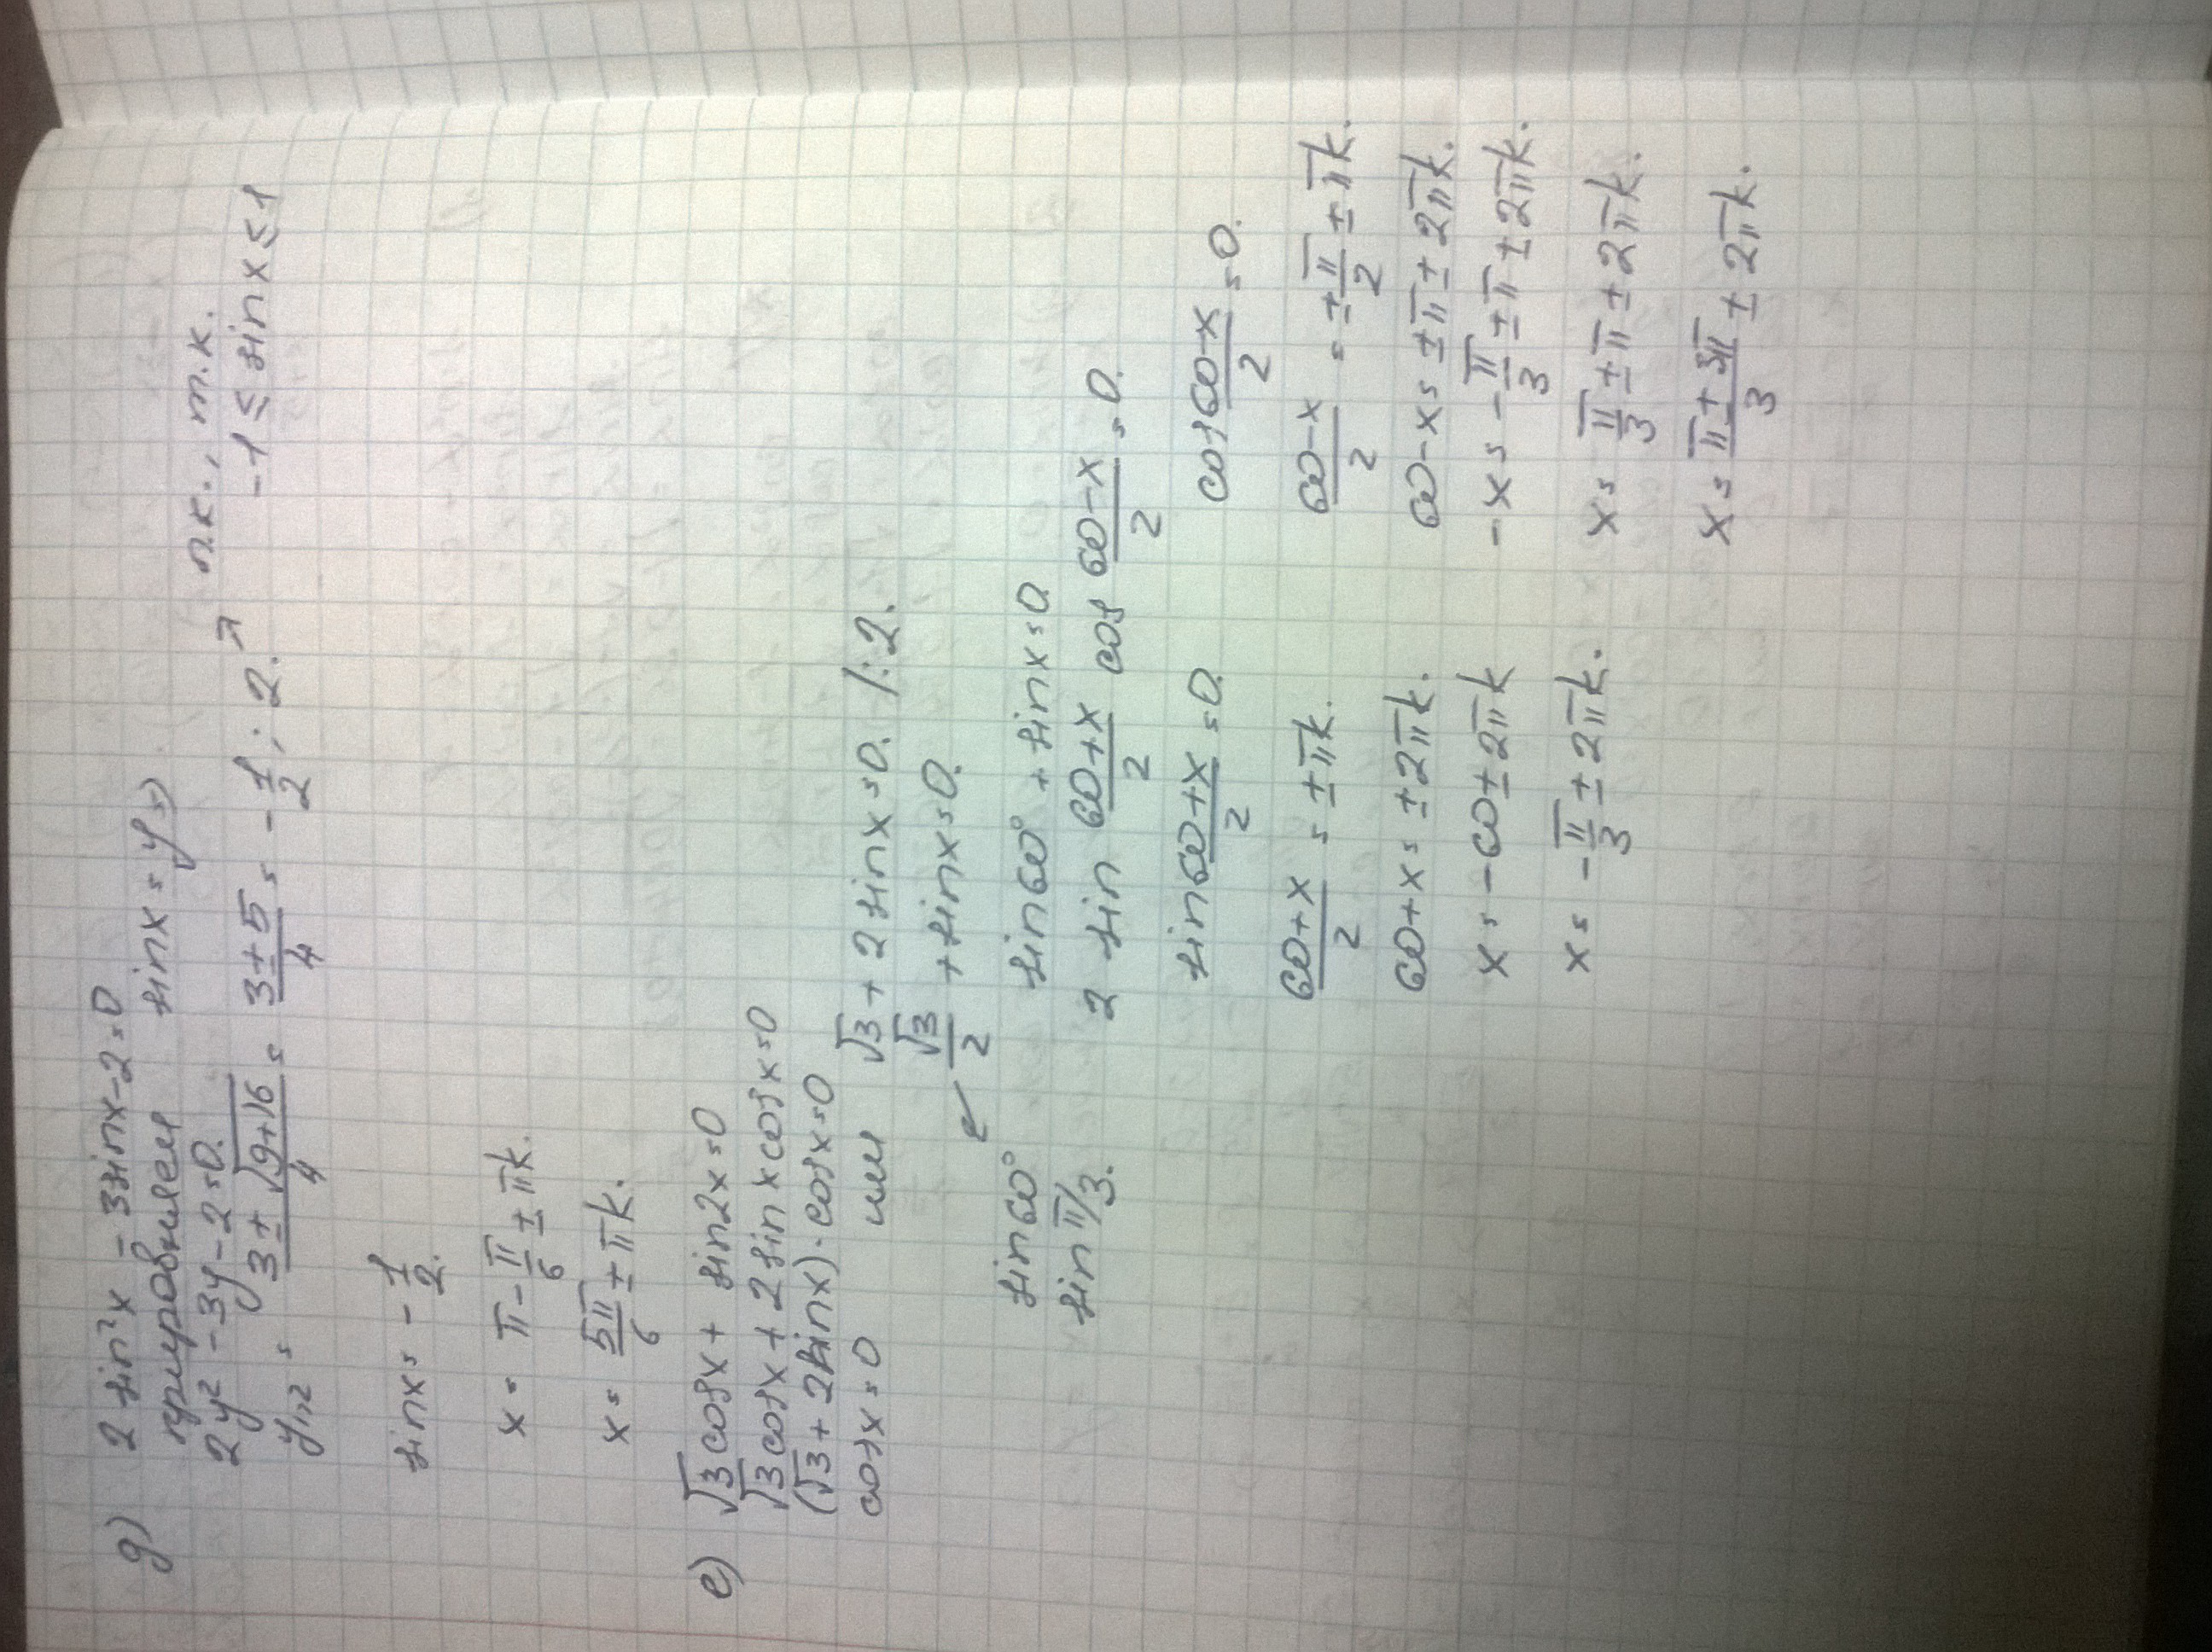 д) 2 sin²x - 3sinx-2=0
приравняем sinx = y ⇒
2y² - 3y - 2 = 0.
y₁,₂ = (3 ± √(9+16))/4 = (3 ± 5)/4 = - 1/2 ; 2. ↗ п.к., т.к.
-1 ≤ sin x ≤ 1
sin x = - 1/2.
x = π - π/6 ± πk.
x = 5π/6 ± πk.
е) √3 cosx + sin2x=0
√3 cosx + 2 sin x cosx=0
(√3 + 2sinx) · cosx=0
cosx=0 или √3 + 2 sinx=0. /:2.
↙ √3/2 + sinx=0.
sin60° sin60° + sinx=0.
sin π/3. 2 sin (60+x)/2 cos (60-x)/2 = 0.
sin (60+x)/2 = 0. cos (60-x)/2 = 0.
(60+x)/2 = ± πk. (60-x)/2 = ± π/2 ± πk.
60+x = ± 2πk. 60-x = ± π ± 2πk.
x = -60 ± 2πk -x = - π/3 ± π ± 2πk.
x = - π/3 ± 2πk. x = π/3 ± π ± 2πk.
x = (π ± 3π)/3 ± 2πk.